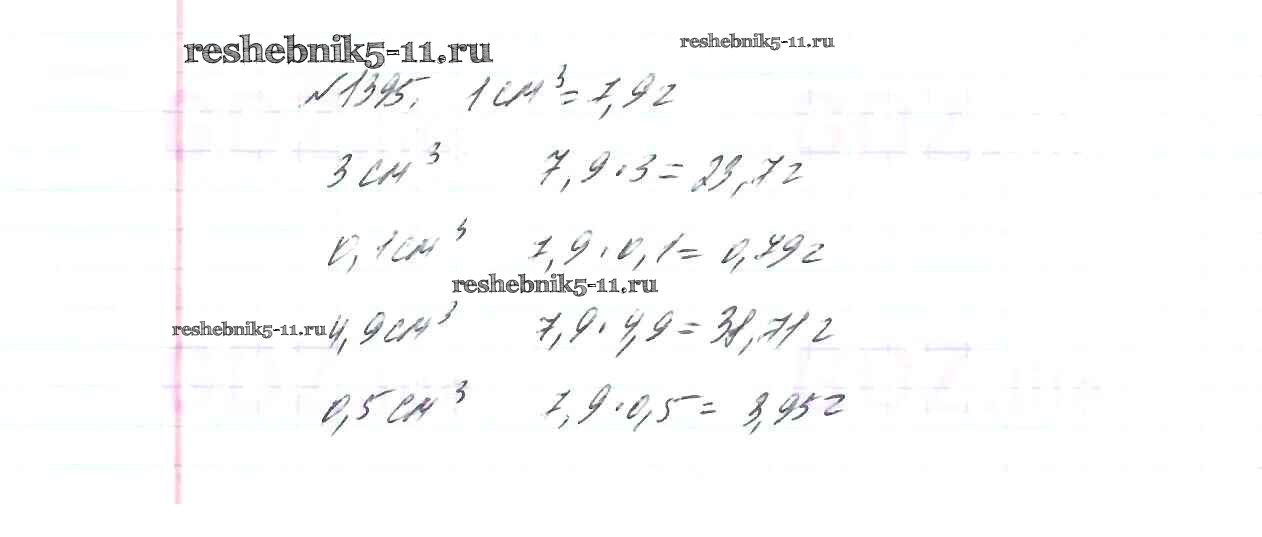 reshebnik5-11.ru
reshebnik5-11.ru
№1395. 1 см³ = 7,9 г
3 см³ 7,9 · 3 = 23,7 г
0,1 см³ 7,9 · 0,1 = 0,79 г
reshebnik5-11.ru
reshebnik5-11.ru
4,9 см³ 7,9 · 4,9 = 38,71 г
0,5 см³ 7,9 · 0,5 = 3,95 г